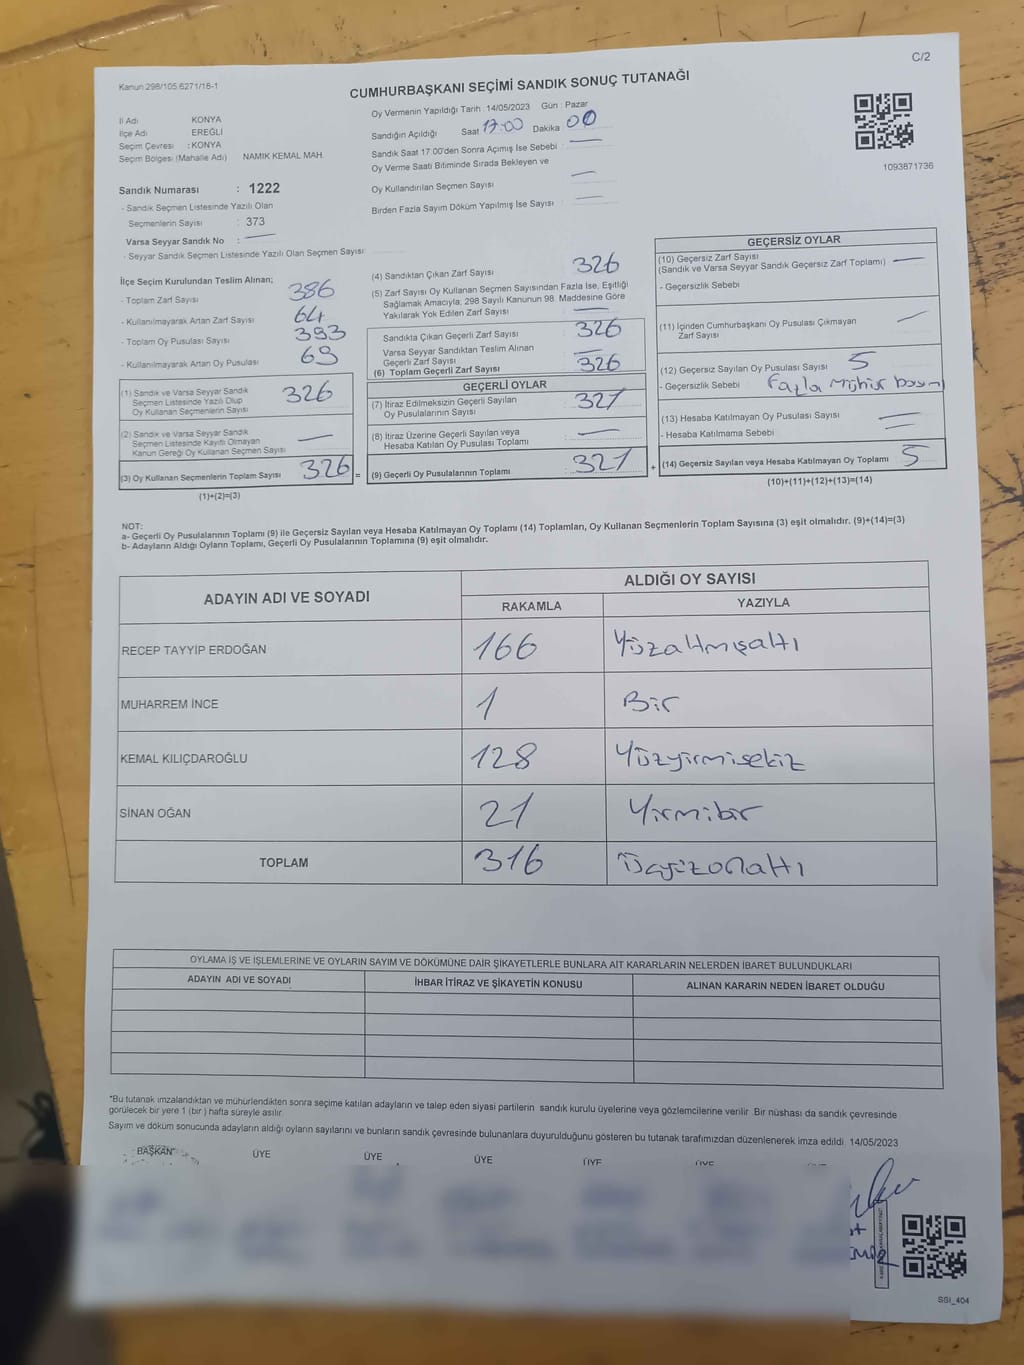 C/2
Kanun 298/105.6271/16-1
CUMHURBAŞKANI SEÇİMİ SANDIK SONUÇ TUTANAĞI
1093871736
İl Adı KONYA
İlçe Adı EREĞLİ
Seçim Çevresi : KONYA
Seçim Bölgesi (Mahalle Adı) NAMIK KEMAL MAH.
Sandık Numarası : 1222
- Sandık Seçmen Listesinde Yazılı Olan
Seçmenlerin Sayısı : 373
Varsa Seyyar Sandık No :
- Seyyar Sandık Seçmen Listesinde Yazılı Olan Seçmen Sayısı
Oy Vermenin Yapıldığı Tarih : 14/05/2023 Gün : Pazar
Sandığın Açıldığı Saat 17:00 Dakika 00
Sandık Saat 17:00'den Sonra Açımış İse Sebebi :
Oy Verme Saati Bitiminde Sırada Bekleyen ve
Oy Kullandırılan Seçmen Sayısı
Birden Fazla Sayım Döküm Yapılmış İse Sayısı :
İlçe Seçim Kurulundan Teslim Alınan;
- Toplam Zarf Sayısı 386
- Kullanılmayarak Artan Zarf Sayısı 64
- Toplam Oy Pusulası Sayısı 393
- Kullanılmayarak Artan Oy Pusulası 69
(1) Sandık ve Varsa Seyyar Sandık
Seçmen Listesinde Yazılı Olup
Oy Kullanan Seçmenlerin Sayısı 326
(2) Sandık ve Varsa Seyyar Sandık
Seçmen Listesinde Kayıtlı Olmayan
Kanun Gereği Oy Kullanan Seçmen Sayısı
(3) Oy Kullanan Seçmenlerin Toplam Sayısı 326 =
(1)+(2)=(3)
(4) Sandıktan Çıkan Zarf Sayısı 326
(5) Zarf Sayısı Oy Kullanan Seçmen Sayısından Fazla İse, Eşitliği
Sağlamak Amacıyla; 298 Sayılı Kanunun 98. Maddesine Göre
Yakılarak Yok Edilen Zarf Sayısı
Sandıkta Çıkan Geçerli Zarf Sayısı : 326
Varsa Seyyar Sandıktan Teslim Alınan
Geçerli Zarf Sayısı
(6) Toplam Geçerli Zarf Sayısı : 326
GEÇERLİ OYLAR
(7) İtiraz Edilmeksizin Geçerli Sayılan
Oy Pusulalarının Sayısı : 321
(8) İtiraz Üzerine Geçerli Sayılan veya
Hesaba Katılan Oy Pusulası Toplamı :
(9) Geçerli Oy Pusulalarının Toplamı : 321 +
GEÇERSİZ OYLAR
(10) Geçersiz Zarf Sayısı
(Sandık ve Varsa Seyyar Sandık Geçersiz Zarf Toplamı)
- Geçersizlik Sebebi
(11) İçinden Cumhurbaşkanı Oy Pusulası Çıkmayan
Zarf Sayısı
(12) Geçersiz Sayılan Oy Pusulası Sayısı : 5
- Geçersizlik Sebebi : Fazla Mühür basım
(13) Hesaba Katılmayan Oy Pusulası Sayısı :
- Hesaba Katılmama Sebebi :
(14) Geçersiz Sayılan veya Hesaba Katılmayan Oy Toplamı : 5
(10)+(11)+(12)+(13)=(14)
NOT:
a- Geçerli Oy Pusulalarının Toplamı (9) ile Geçersiz Sayılan veya Hesaba Katılmayan Oy Toplamı (14) Toplamları, Oy Kullanan Seçmenlerin Toplam Sayısına (3) eşit olmalıdır. (9)+(14)=(3)
b- Adayların Aldığı Oyların Toplamı, Geçerli Oy Pusulalarının Toplamına (9) eşit olmalıdır.
ADAYIN ADI VE SOYADI ALDIĞI OY SAYISI
RAKAMLA YAZIYLA
RECEP TAYYİP ERDOĞAN 166 Yüzaltmışaltı
MUHARREM İNCE 1 Bir
KEMAL KILIÇDAROĞLU 128 Yüzyirmisekiz
SİNAN OĞAN 21 Yirmibir
TOPLAM 316 Üçyüzonaltı
OYLAMA İŞ VE İŞLEMLERİNE VE OYLARIN SAYIM VE DÖKÜMÜNE DAİR ŞİKAYETLERLE BUNLARA AİT KARARLARIN NELERDEN İBARET BULUNDUKLARI
ADAYIN ADI VE SOYADI İHBAR İTİRAZ VE ŞİKAYETİN KONUSU ALINAN KARARIN NEDEN İBARET OLDUĞU
*Bu tutanak imzalandıktan ve mühürlendikten sonra seçime katılan adayların ve talep eden siyasi partilerin sandık kurulu üyelerine veya gözlemcilerine verilir. Bir nüshası da sandık çevresinde
görülecek bir yere 1 (bir ) hafta süreyle asılır.
Sayım ve döküm sonucunda adayların aldığı oyların sayılarını ve bunların sandık çevresinde bulunanlara duyurulduğunu gösteren bu tutanak tarafımızdan düzenlenerek imza edildi. 14/05/2023
BAŞKAN ÜYE ÜYE ÜYE ÜYE ÜYE
SGI_404